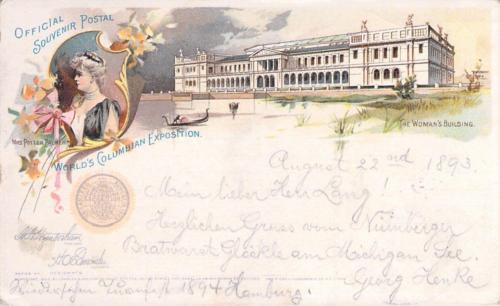 OFFICIAL
SOUVENIR POSTAL
MRS POTTER PALMER
WORLD'S COLUMBIAN EXPOSITION.
THE WOMAN'S BUILDING.
August 22nd 1893.
Mein lieber Herr Lang!
Herzlichen Gruss vom Nürnberger
Bratwurst Glöckle am Michigan See.
Georg Henke
1894 Hamburg!